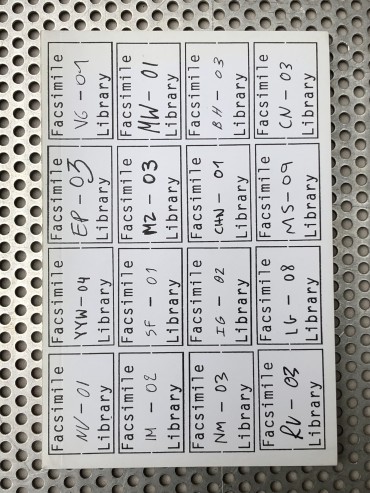 Facsimile
VG - 01
Library
Facsimile
MW - 01
Library
Facsimile
BH - 03
Library
Facsimile
CN - 03
Library
Facsimile
EP - 03
Library
Facsimile
MZ - 03
Library
Facsimile
CHN - 01
Library
Facsimile
MS - 09
Library
Facsimile
YYW - 04
Library
Facsimile
SF - 01
Library
Facsimile
IG - 02
Library
Facsimile
LG - 08
Library
Facsimile
NV - 01
Library
Facsimile
IM - 02
Library
Facsimile
NM - 03
Library
Facsimile
RV - 03
Library